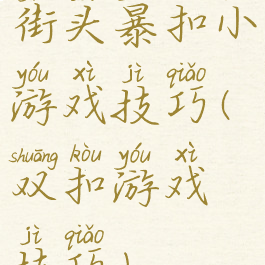 街头暴扣小
yóu xì jì qiǎo
游戏技巧(
shuāng kòu yóu xì
双扣游戏
jì qiǎo
技巧)